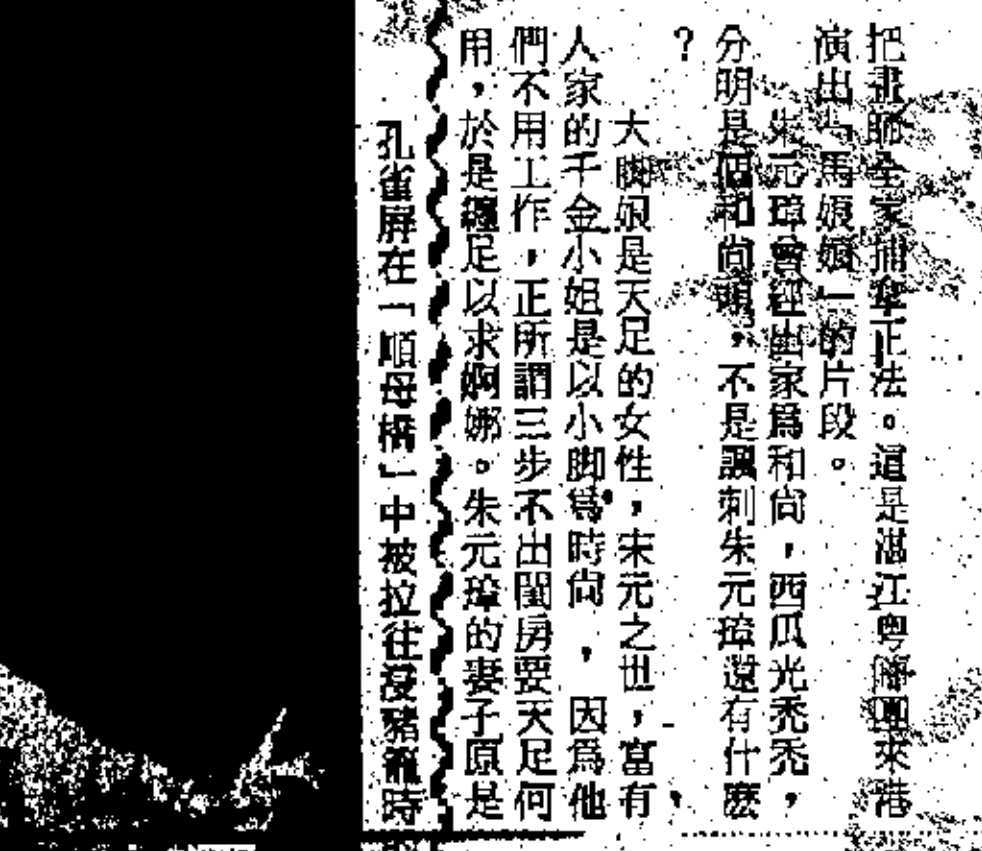 把畫師全家捕拿正法。這是湛江粵劇團來港
演出「馬娘娘」的片段。
朱元璋曾經出家爲和尚，西瓜光禿禿，
分明是個和尚頭，不是諷刺朱元璋還有什麽
？
大脚娘是天足的女性，宋元之世，富有
人家的千金小姐是以小脚爲時尚，因爲他
們不用工作，正所謂三步不出閨房要天足何
用，於是纏足以求婀娜。朱元璋的妻子原是
孔雀屏在「順母橋」中被拉往浸豬籠時